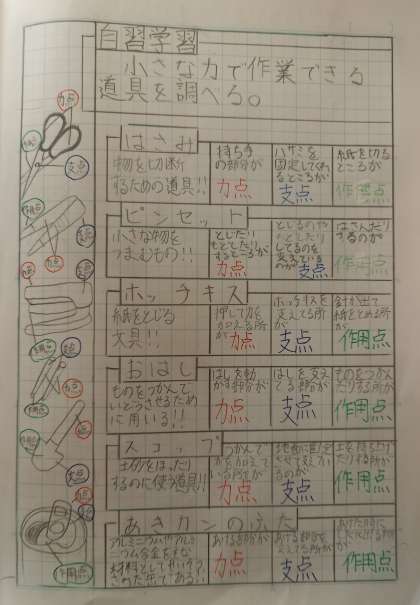 自習学習
小さな力で作業できる
道具を調べる。
はさみ
物を切断
するための道具!!
持ち手
の部分が
力点
ハサミを
固定してくれ
るところが
支点
紙を切る
ところが
作用点
ピンセット
小さな物を
つまむもの!!
とじたり
もどしたり
するところが
力点
支点
はさんだり
するのが
作用点
ホッチキス
紙をとじる
文具!!
押して力を
加える所
が力点
ホッチキスを
支えてる所
が支点
針が出て
紙をとめる所
が
作用点
おはし
ものをつかんで
いどうさせるため
に用いる!!
はしを動
かす部分が
力点
はしを支え
てる部分が
支点
ものをつかん
だりする所が
作用点
スコップ
土砂をほったり
するのに使う道具!!
つかんで
力を加えて
いる所が
力点
支点
土を持ち上げ
たりする所が
作用点
あきカンのふた
アルミニウムやアルミニ
ウム合金をおもな
材料として
あける部分が
力点
あける部分を
支えてる所が
支点
あけた時に
作用点
力点
支点
作用点
作用点
支点
力点
力点
支点
作用点
支点
力点
作用点
作用点
力点
支点
力点
支点
作用点